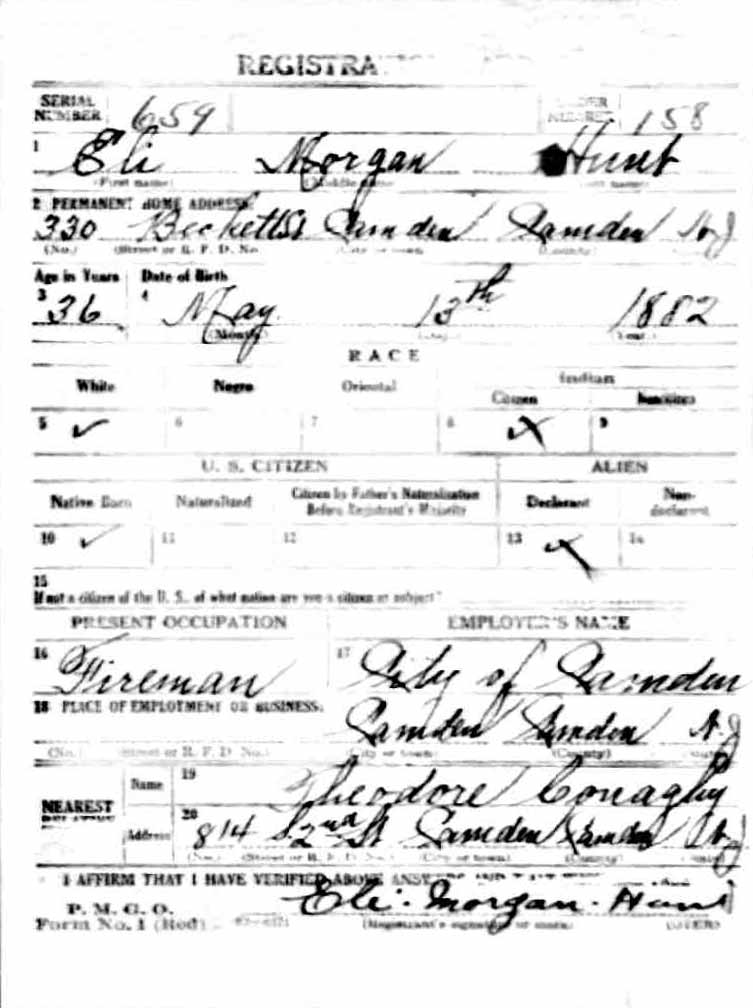 REGISTRA
SERIAL NUMBER 659 158
1 Eli Morgan Hunt
(First name) (Middle name)
2 PERMANENT HOME ADDRESS
330 Beckett St Camden Camden N J
(No.) (Street or R. F. D. No. (City or town) (County)
Age in Years Date of Birth
3 36 4 May 13th 1882
(Month) (Year)
RACE
White Negro Oriental Indian
Citizen
5 ✓ 6 7 8 X 9
U. S. CITIZEN ALIEN
Native Born Naturalized Citizen by Father's Naturalization Before Registrant's Majority Declarant Non-declarant
10 ✓ 11 12 13 X 14
15
If not a citizen of the U. S., of what nation are you a citizen or subject?
PRESENT OCCUPATION EMPLOYER'S NAME
16 Fireman 17 City of Camden
18 PLACE OF EMPLOYMENT OR BUSINESS:
Camden Camden N. J
(No.) (Street or R. F. D. No.) (City or town) (County) (State)
NEAREST Name 19 Theodore Conaghy
Address 20 814 S 2nd St Camden Camden N J
(No.) (Street or R. F. D. No.) (City or town) (County) (State)
I AFFIRM THAT I HAVE VERIFIED ABOVE
P. M. G. O.
Form No. 1 (Red) Eli. Morgan. Hunt
(Registrant's signature or mark) (OVER)